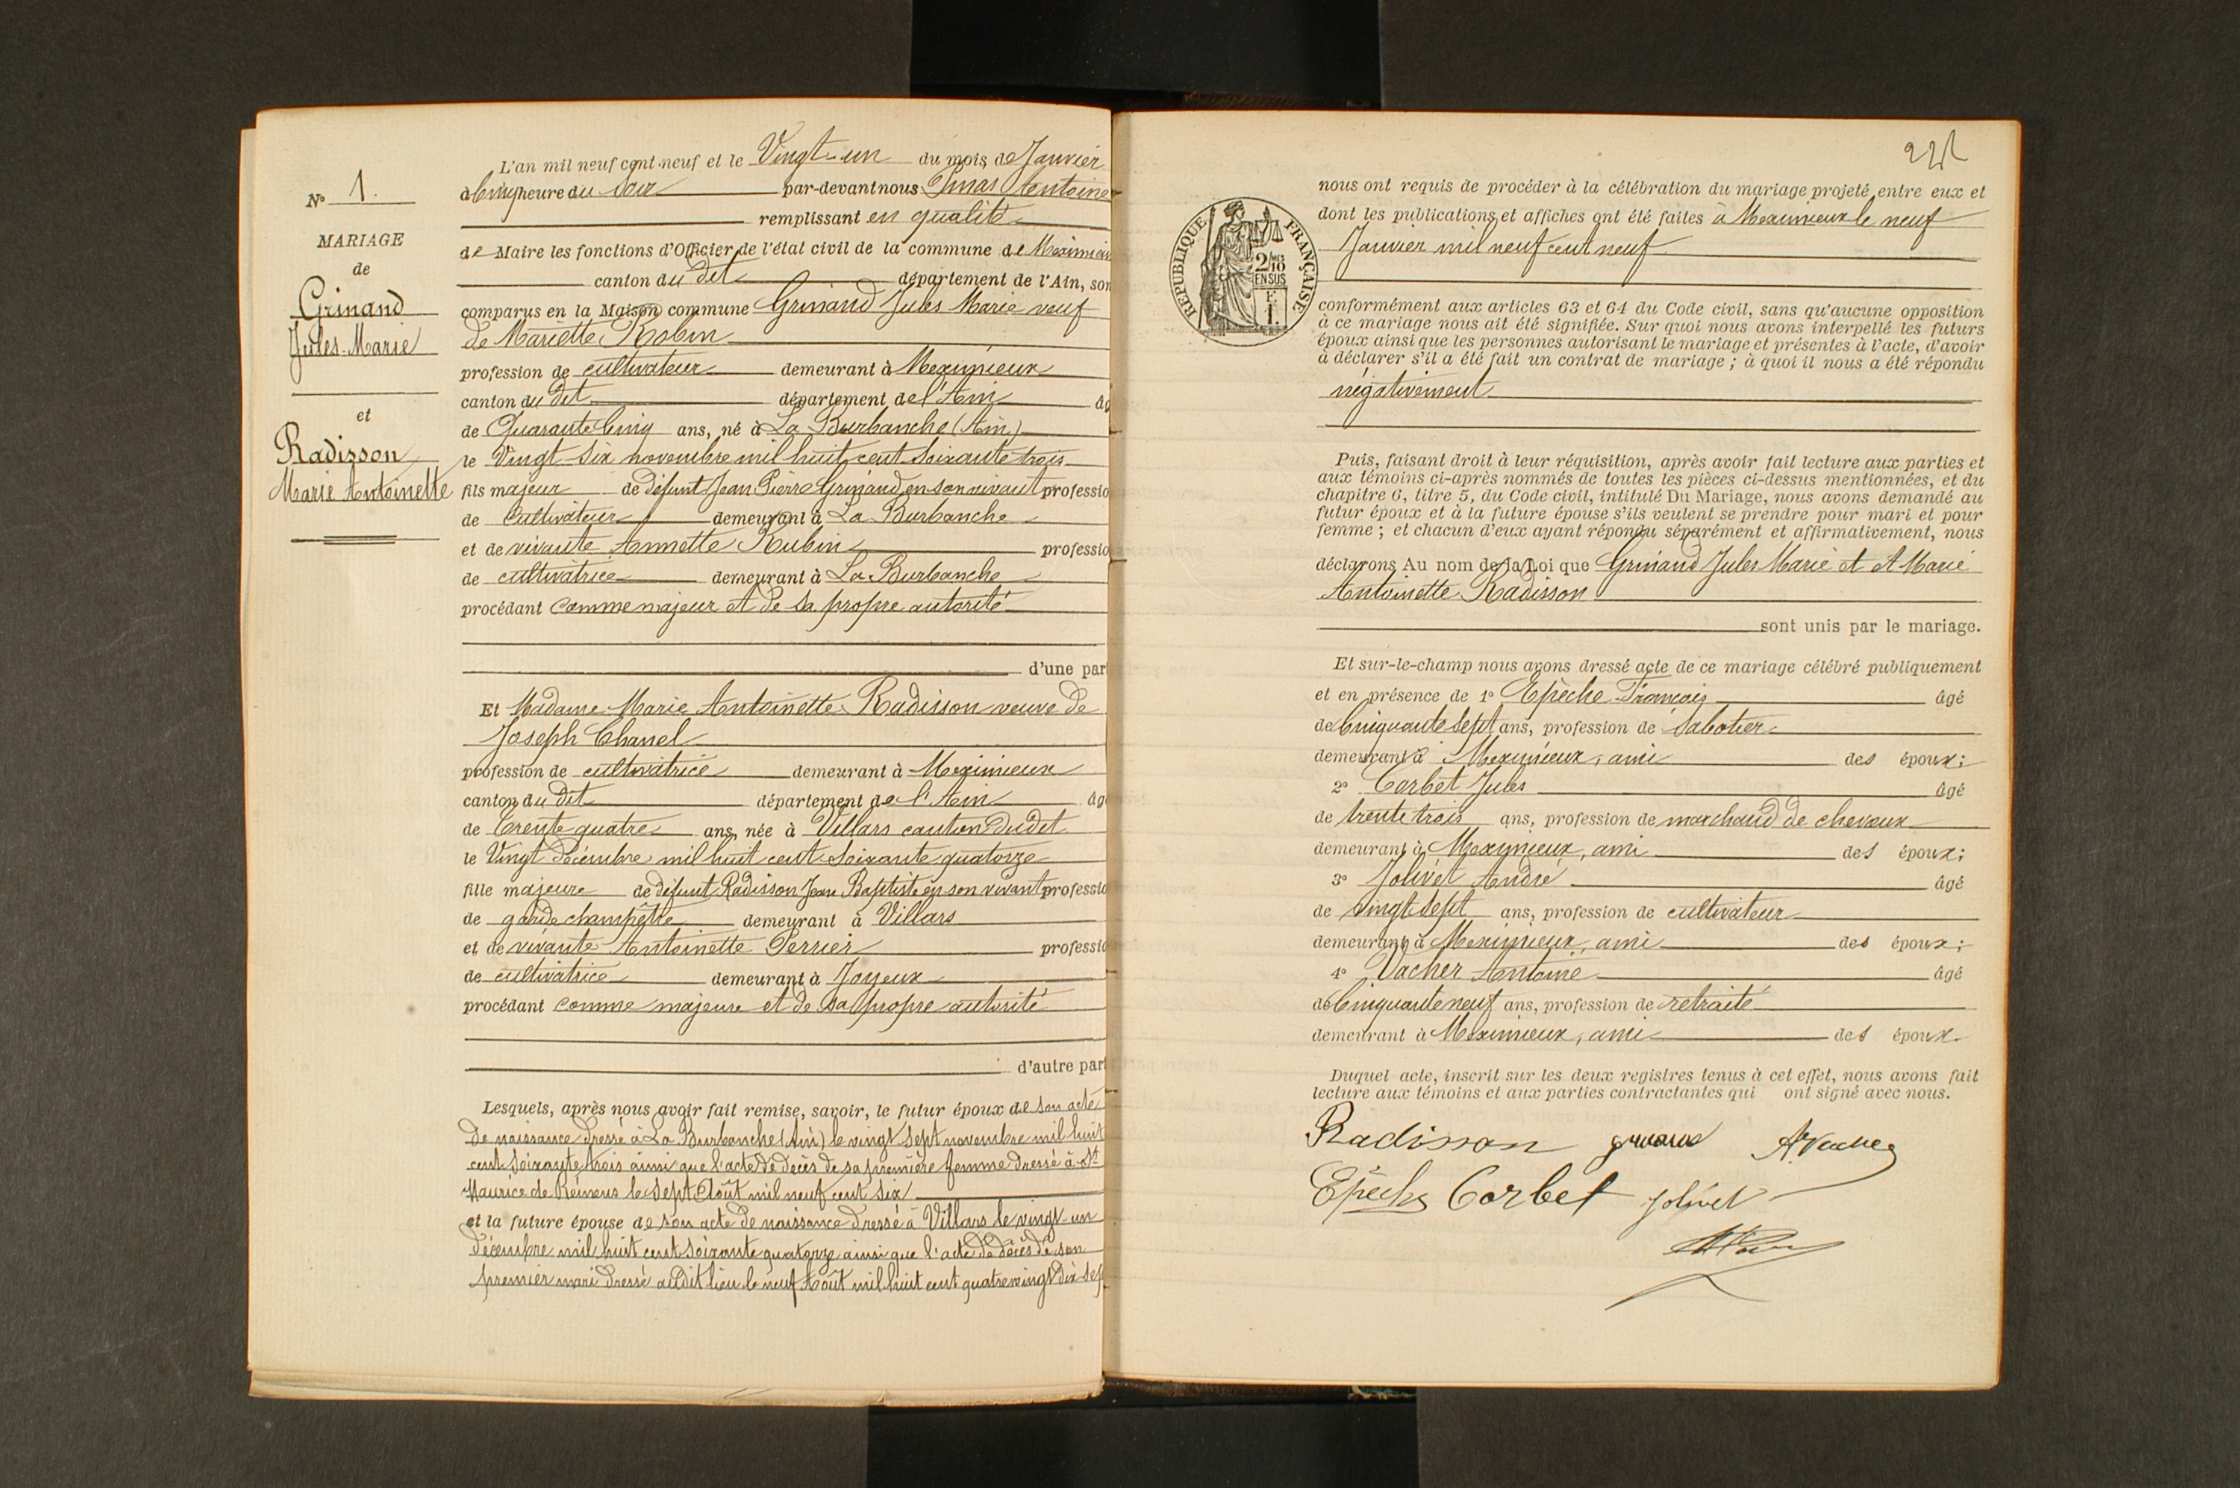 N° 1.
MARIAGE
de
Grinand
Jules-Marie
et
Radisson
Marie Antoinette
L'an mil neuf cent neuf et le Vingt-un du mois de Janvier
à Cinq heure du soir par-devant nous Antoine
remplissant en qualité
de Maire les fonctions d'Officier de l'état civil de la commune de
canton du dit département de l'Ain, son
comparus en la Maison commune Grinand Jules Marie veuf
de Mariette Robin
profession de cultivateur demeurant à Meximieux
canton du dit département de l'Ain âg
de Quarante Cinq ans, né à La Burbanche (Ain)
le Vingt-Six novembre mil huit cent Soixante trois
fils majeur de défunt Jean Pierre Grinand en son vivant professio
de Cultivateur demeurant à La Burbanche
et de vivante Annette Rubin professio
de cultivatrice demeurant à La Burbanche
procédant comme majeur et de sa propre autorité
d'une part
Et Madame Marie Antoinette Radisson veuve de
Joseph Chanel
profession de cultivatrice demeurant à Meximieux
canton du dit département de l'Ain âg
de Trente quatre ans, née à Villars canton dudit
le Vingt Décembre mil huit cent Soixante quatorze
fille majeure de défunt Radisson Jean Baptiste en son vivant professio
de garde champêtre demeurant à Villars
et de vivante Antoinette Perrier professio
de cultivatrice demeurant à Joyeux
procédant comme majeure et de sa propre autorité
d'autre part
Lesquels, après nous avoir fait remise, savoir, le futur époux de son acte
de naissance dressé à La Burbanche (Ain) le vingt Sept novembre mil huit
cent Soixante trois ainsi que l'acte de décès de sa première femme dressé à St
Maurice de Rémens le Sept Août mil neuf cent Six
et la future épouse de son acte de naissance dressé à Villars le vingt-un
décembre mil huit cent Soixante quatorze ainsi que l'acte de décès de son
premier mari dressé audit lieu le neuf Août mil huit cent quatre vingt dix sep
REPUBLIQUE FRANÇAISE
2/10
EN SUS
nous ont requis de procéder à la célébration du mariage projeté entre eux et
dont les publications et affiches ont été faites à Meximieux le neuf
Janvier mil neuf cent neuf
conformément aux articles 63 et 64 du Code civil, sans qu'aucune opposition
à ce mariage nous ait été signifiée. Sur quoi nous avons interpellé les futurs
époux ainsi que les personnes autorisant le mariage et présentes à l'acte, d'avoir
à déclarer s'il a été fait un contrat de mariage ; à quoi il nous a été répondu
négativement
Puis, faisant droit à leur réquisition, après avoir fait lecture aux parties et
aux témoins ci-après nommés de toutes les pièces ci-dessus mentionnées, et du
chapitre 6, titre 5, du Code civil, intitulé Du Mariage, nous avons demandé au
futur époux et à la future épouse s'ils veulent se prendre pour mari et pour
femme ; et chacun d'eux ayant répondu séparément et affirmativement, nous
déclarons Au nom de la Loi que Grinand Jules Marie et Marie
Antoinette Radisson
sont unis par le mariage.
Et sur-le-champ nous avons dressé acte de ce mariage célébré publiquement
et en présence de 1° Epèche François âgé
de Cinquante Sept ans, profession de Sabotier
demeurant à Meximieux, ami des époux;
2° Corbet Jules âgé
de trente trois ans, profession de marchand de chevaux
demeurant à Meximieux, ami des époux;
3° Jolivet André âgé
de vingt Sept ans, profession de cultivateur
demeurant à Meximieux, ami des époux;
4° Vacher Antoine âgé
de Cinquante neuf ans, profession de retraité
demeurant à Meximieux, ami des époux.
Duquel acte, inscrit sur les deux registres tenus à cet effet, nous avons fait
lecture aux témoins et aux parties contractantes qui ont signé avec nous.
Radisson grinand A. Vacher
Epèche Corbet Jolivet